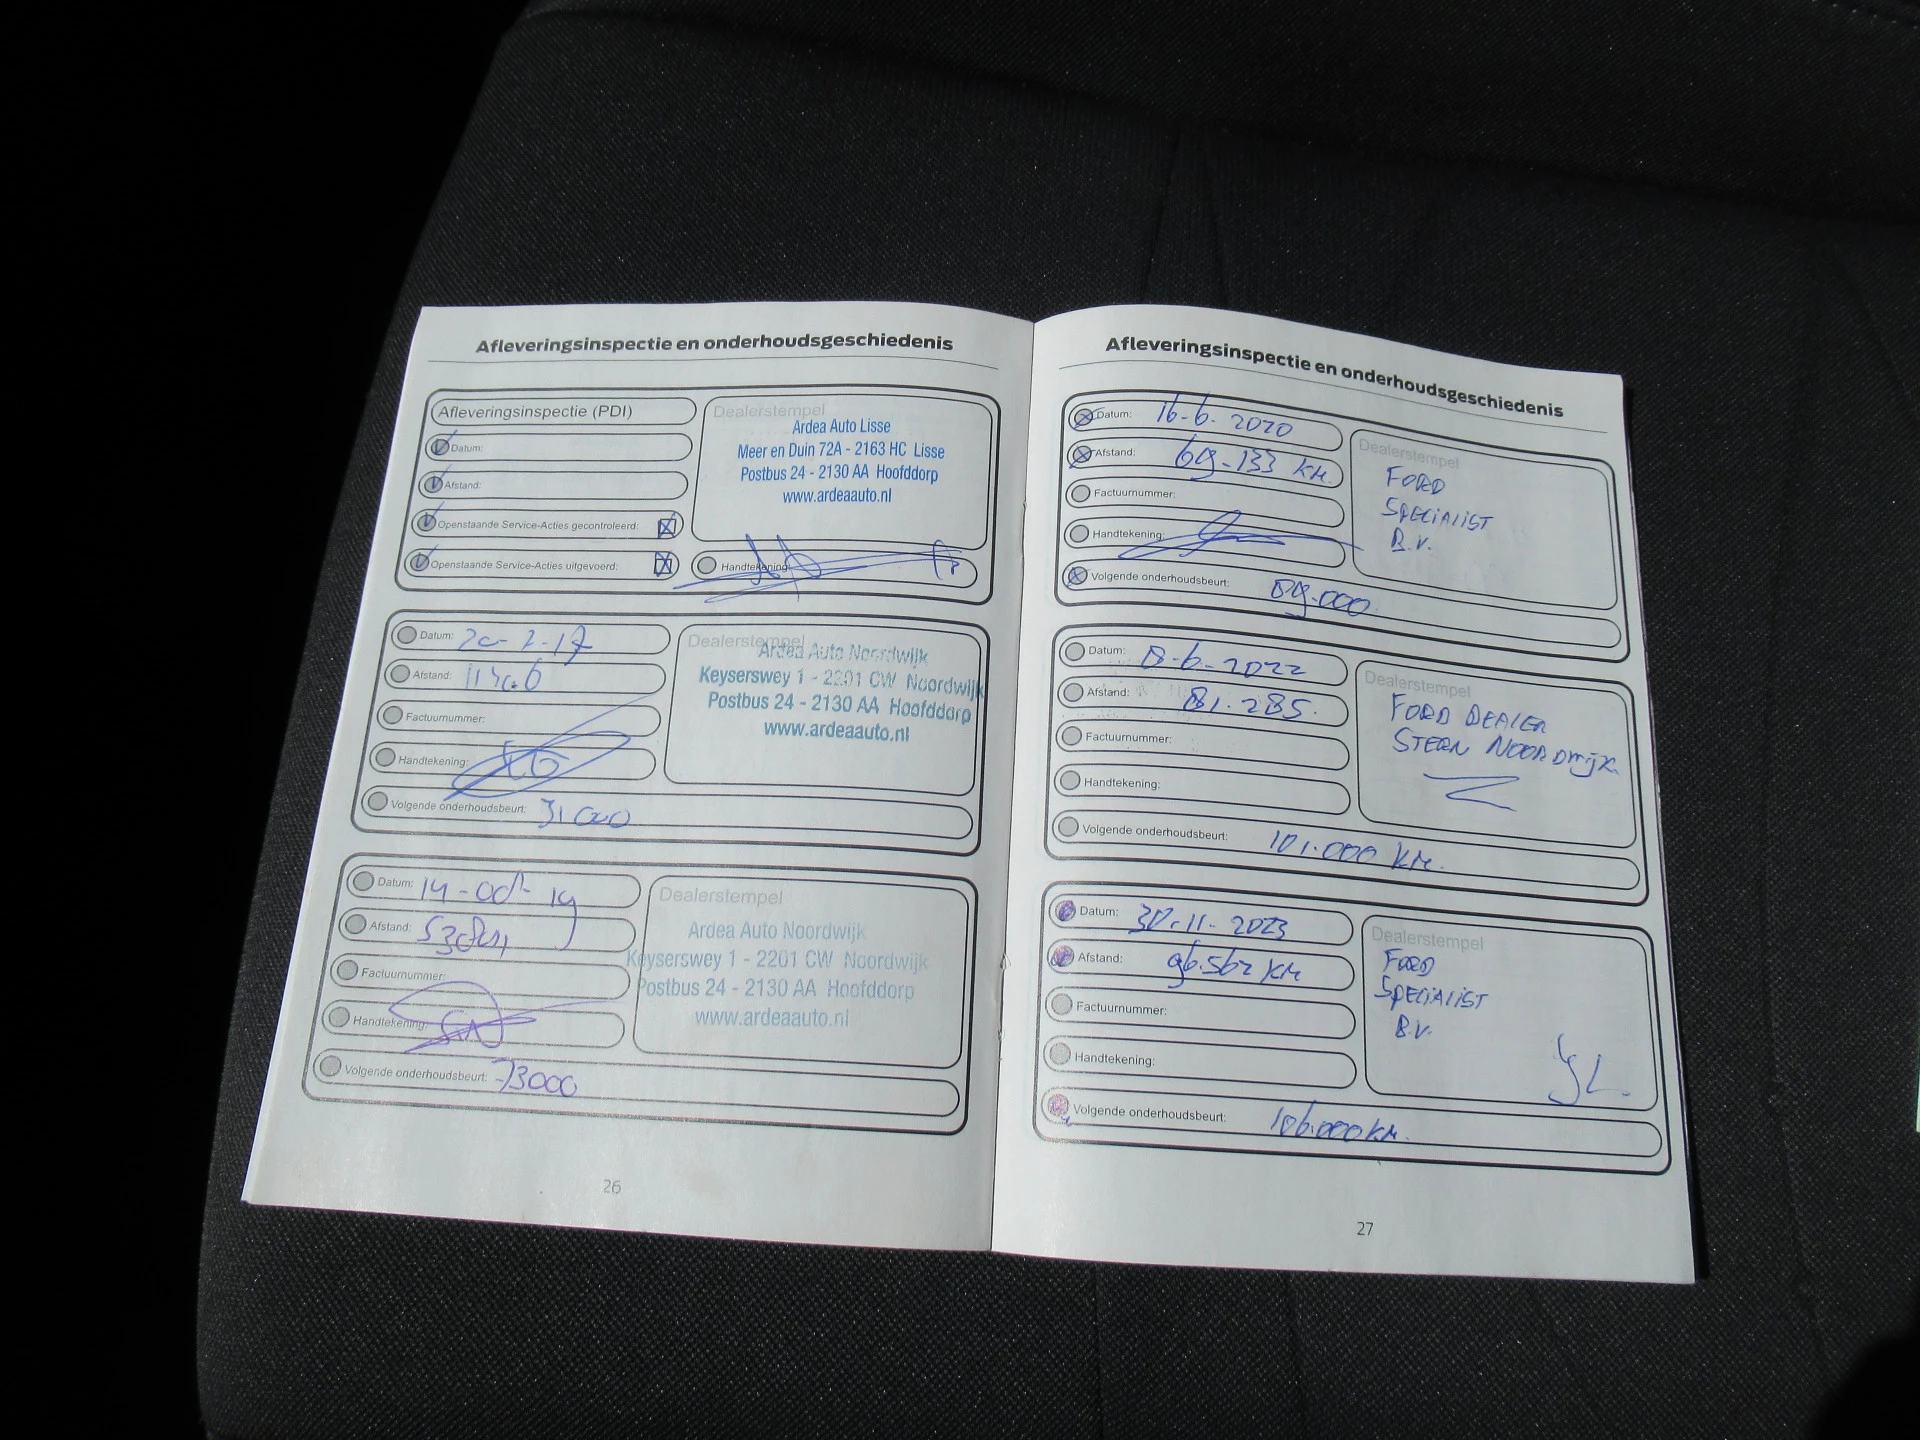 Afleveringsinspectie en onderhoudsgeschiedenis
Afleveringsinspectie (PDI)
Datum:
Afstand:
Openstaande Service-Acties gecontroleerd:
Openstaande Service-Acties uitgevoerd:
Dealerstempel
Ardea Auto Lisse
Meer en Duin 72A - 2163 HC Lisse
Postbus 24 - 2130 AA Hoofddorp
www.ardeaauto.nl
Handtekening:
Datum: 20-2-17
Afstand:
Factuurnummer:
Handtekening:
Volgende onderhoudsbeurt: 31000
Dealerstempel
Ardea Auto Noordwijk
Keyserswey 1 - 2201 CW Noordwijk
Postbus 24 - 2130 AA Hoofddorp
www.ardeaauto.nl
Datum: 14-oct-19
Afstand:
Factuurnummer:
Handtekening:
Volgende onderhoudsbeurt: 73000
Dealerstempel
Ardea Auto Noordwijk
Keyserswey 1 - 2201 CW Noordwijk
Postbus 24 - 2130 AA Hoofddorp
www.ardeaauto.nl
26
Afleveringsinspectie en onderhoudsgeschiedenis
Datum: 16-6-2020
Afstand: 69-133 KM.
Factuurnummer:
Handtekening:
Volgende onderhoudsbeurt: 89.000
Dealerstempel
FORD
SPECIALIST
B.V.
Datum: 8-6-2022
Afstand: 81.285.
Factuurnummer:
Handtekening:
Volgende onderhoudsbeurt: 101.000 KM.
Dealerstempel
FORD DEALER
STERN NOORDWIJK.
Datum: 30.11.2023
Afstand: 96.562 KM
Factuurnummer:
Handtekening:
Volgende onderhoudsbeurt: 106.000 KM.
Dealerstempel
FORD
SPECIALIST
B.V.
27